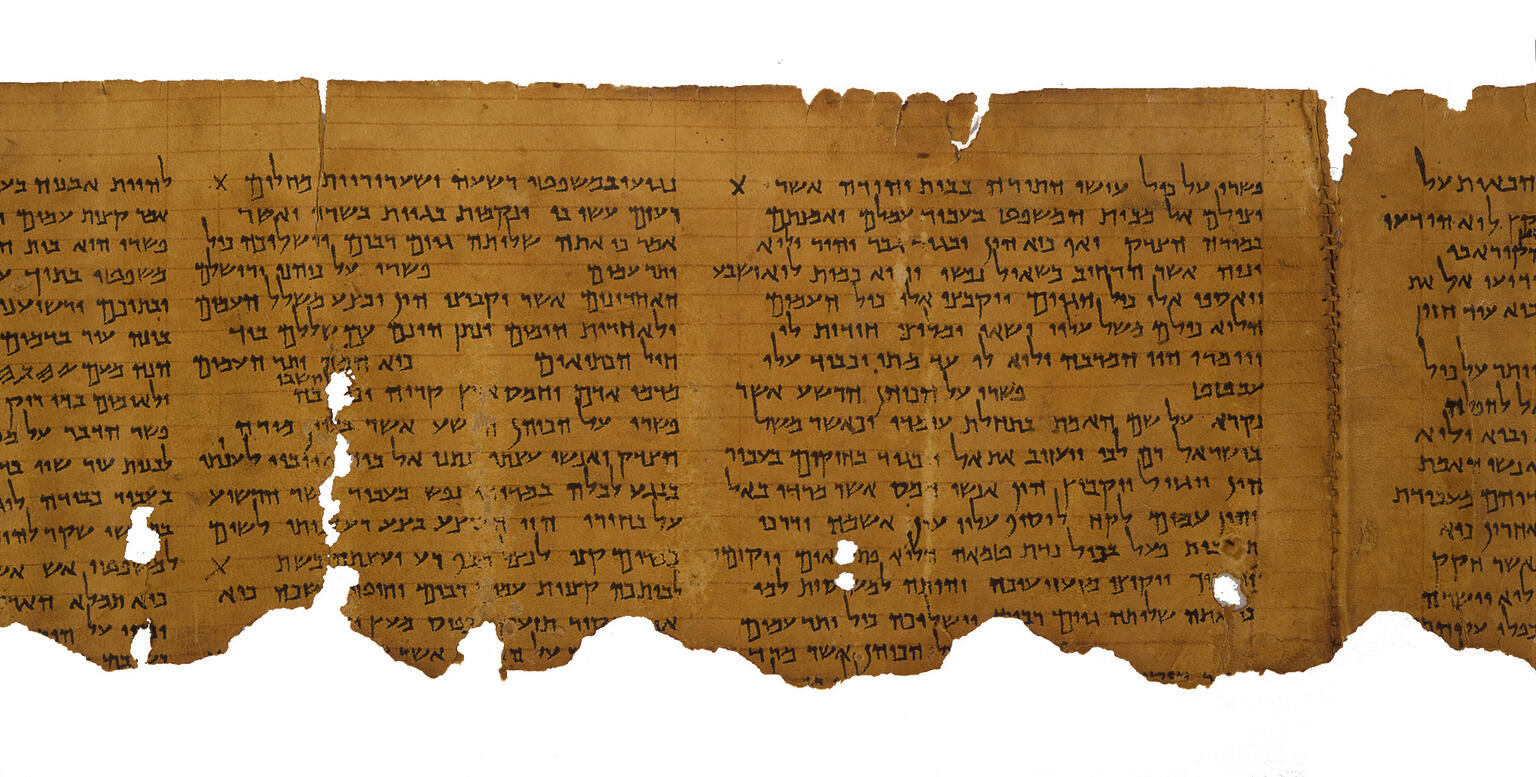 הבאות על
הקץ לוא הודעו
הודיעו אל את
כיא עוד חזון
יתר על כול
אל להפלה
יבוא ולוא
אנשי האמת
ידיהם מעבודת
האחרון כיא
אשר חקק
לוא יושרה
עליהם
פשרו על כול עושי התורה בבית יהודה אשר X
יצילם אל מבית המשפט בעבור עמלם ואמנתם
במורה הצדק ואף כיא הון יבגוד גבר יהיר ולוא
ינוה אשר הרחיב כשאול נפשו והוא כמות לוא ישבע
ויאספו אלו כול הגוים ויקבצו אלו כול העמים
הלוא כולם משל עליו ישאו ומליצי חידות לו
ויומרו הוי המרבה ולוא לו עד מתי יכביד עלו
עבטט פשרו על הכוהן הרשע אשר
נקרא על שם האמת בתחלת עומדו וכאשר משל
בישראל רם לבו ויעזוב את אל ויבגוד בחוקים בעבור
הון ויגזול ויקבוץ הון אנשי חמס אשר מרדו באל
והון עמים לקח לוסיף עליו עון אשמה ודרכי
פעל בכול נדת טמאה הלוא פתאום ויקומו
ויקיצו מזעזיעיכה והייתה למשיסות למו
כי אתה שלותה גוים רבים וישלוכה כול יתר עמים
הכוהן אשר מרד
נגועו במשפטי רשעה ושערוריות מחלים X
רעים עשו בו ונקמות בגוית בשרו ואשר
אמר כי אתה שלותה גוים רבים וישלוכה כול
יתר עמים פשרו על כוהני ירושלם
האחרונים אשר יקבוצו הון ובצע משלל העמים
ולאחרית הימים ינתן הונם עם שללם ביד
חיל הכתיאים כיא המה יתר העמים
מדמי אדם וחמס ארץ קריה יושבי בה
פשרו על הכוהן הרשע אשר מורה
הצדק ואנשי עצתו נתנו אל ביד אויביו לענותו
בנגע לכלה במרורי נפש בעבור אשר הרשיע
על בחירו הוי הבוצע בצע רע לביתו לשום
במרום קנו לנצל מכף רע יעצתה בשת X
לביתכה קצוות עמים רבים וחוטי נפשכה כיא
מקיר תזעק וכפיס מעץ
להיות אבניה
אמר קצות עמים
פשרו הוא בית
משפטו בתוך
ובתוכם ירשיענו
בונה עיר בדמים
הנה מעם
ולאומים בדי ריק
פשר הדבר על
לבנות עיר שוו
בעבור כבודה
שקר
למשפטי אש
כיא תמלא הארץ